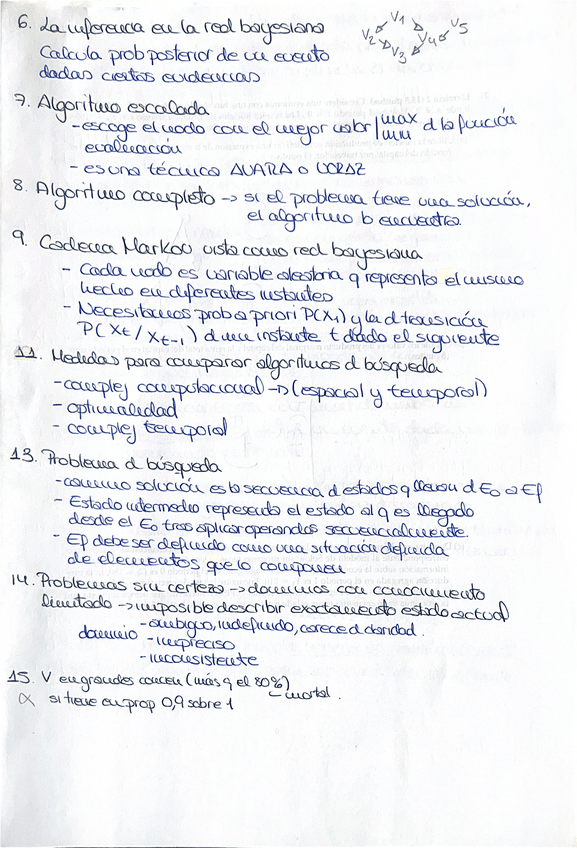 6. La inferencia en la red bayesiana
V1 V5
V2 V3 V4
Calcula prob posterior de un evento
dadas ciertas evidencias
7. Algoritmo escalada
- escoge el nodo con el mejor valor | max min d la función
evaluación
- es una técnica AVARA o VORAZ
8. Algoritmo completo -> si el problema tiene una solución,
el algoritmo lo encuentra
9. Cadena Markov vista como red bayesiana
- Cada nodo es variable aleatoria q representa el mismo
hecho en diferentes instantes
- Necesitamos prob a priori P(X1) y la d transición
P(Xt / Xt-1) d un instante t dado el siguiente
11. Medidas para comparar algoritmos d búsqueda
- complej computacional -> (espacial y temporal)
- optimalidad
- complej temporal
13. Problema d búsqueda
- camino solución es la secuencia d estados q llevan d E0 a Ef
- Estado intermedio representa el estado al q es llegado
desde el E0 tras aplicar operandos secuencialmente.
- Ef debe ser definido como una situación definida
de elementos que lo componen
14. Problemas sin certeza -> dominios con conocimiento
limitado -> imposible describir exactamente estado actual
- ambiguo, indefinido, carece d claridad.
dominio - impreciso
- inconsistente
15. V en grandes concen (más q el 80%)
- mortal.
α si tiene en prop 0,9 sobre 1